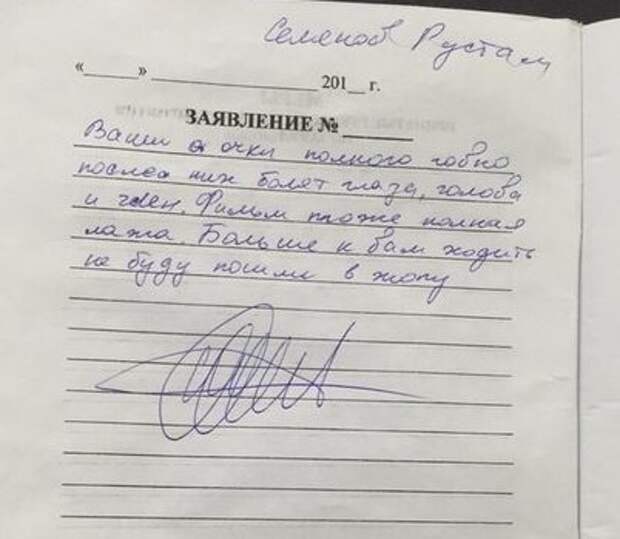 Семенов Рустам
«_____» __________________ 201__ г.
ЗАЯВЛЕНИЕ № _______
Ваши очки полного говно
после них болят глаза, голова
и член. Фильм тоже полная
лажа. Больше к вам ходить
не буду пошли в жопу